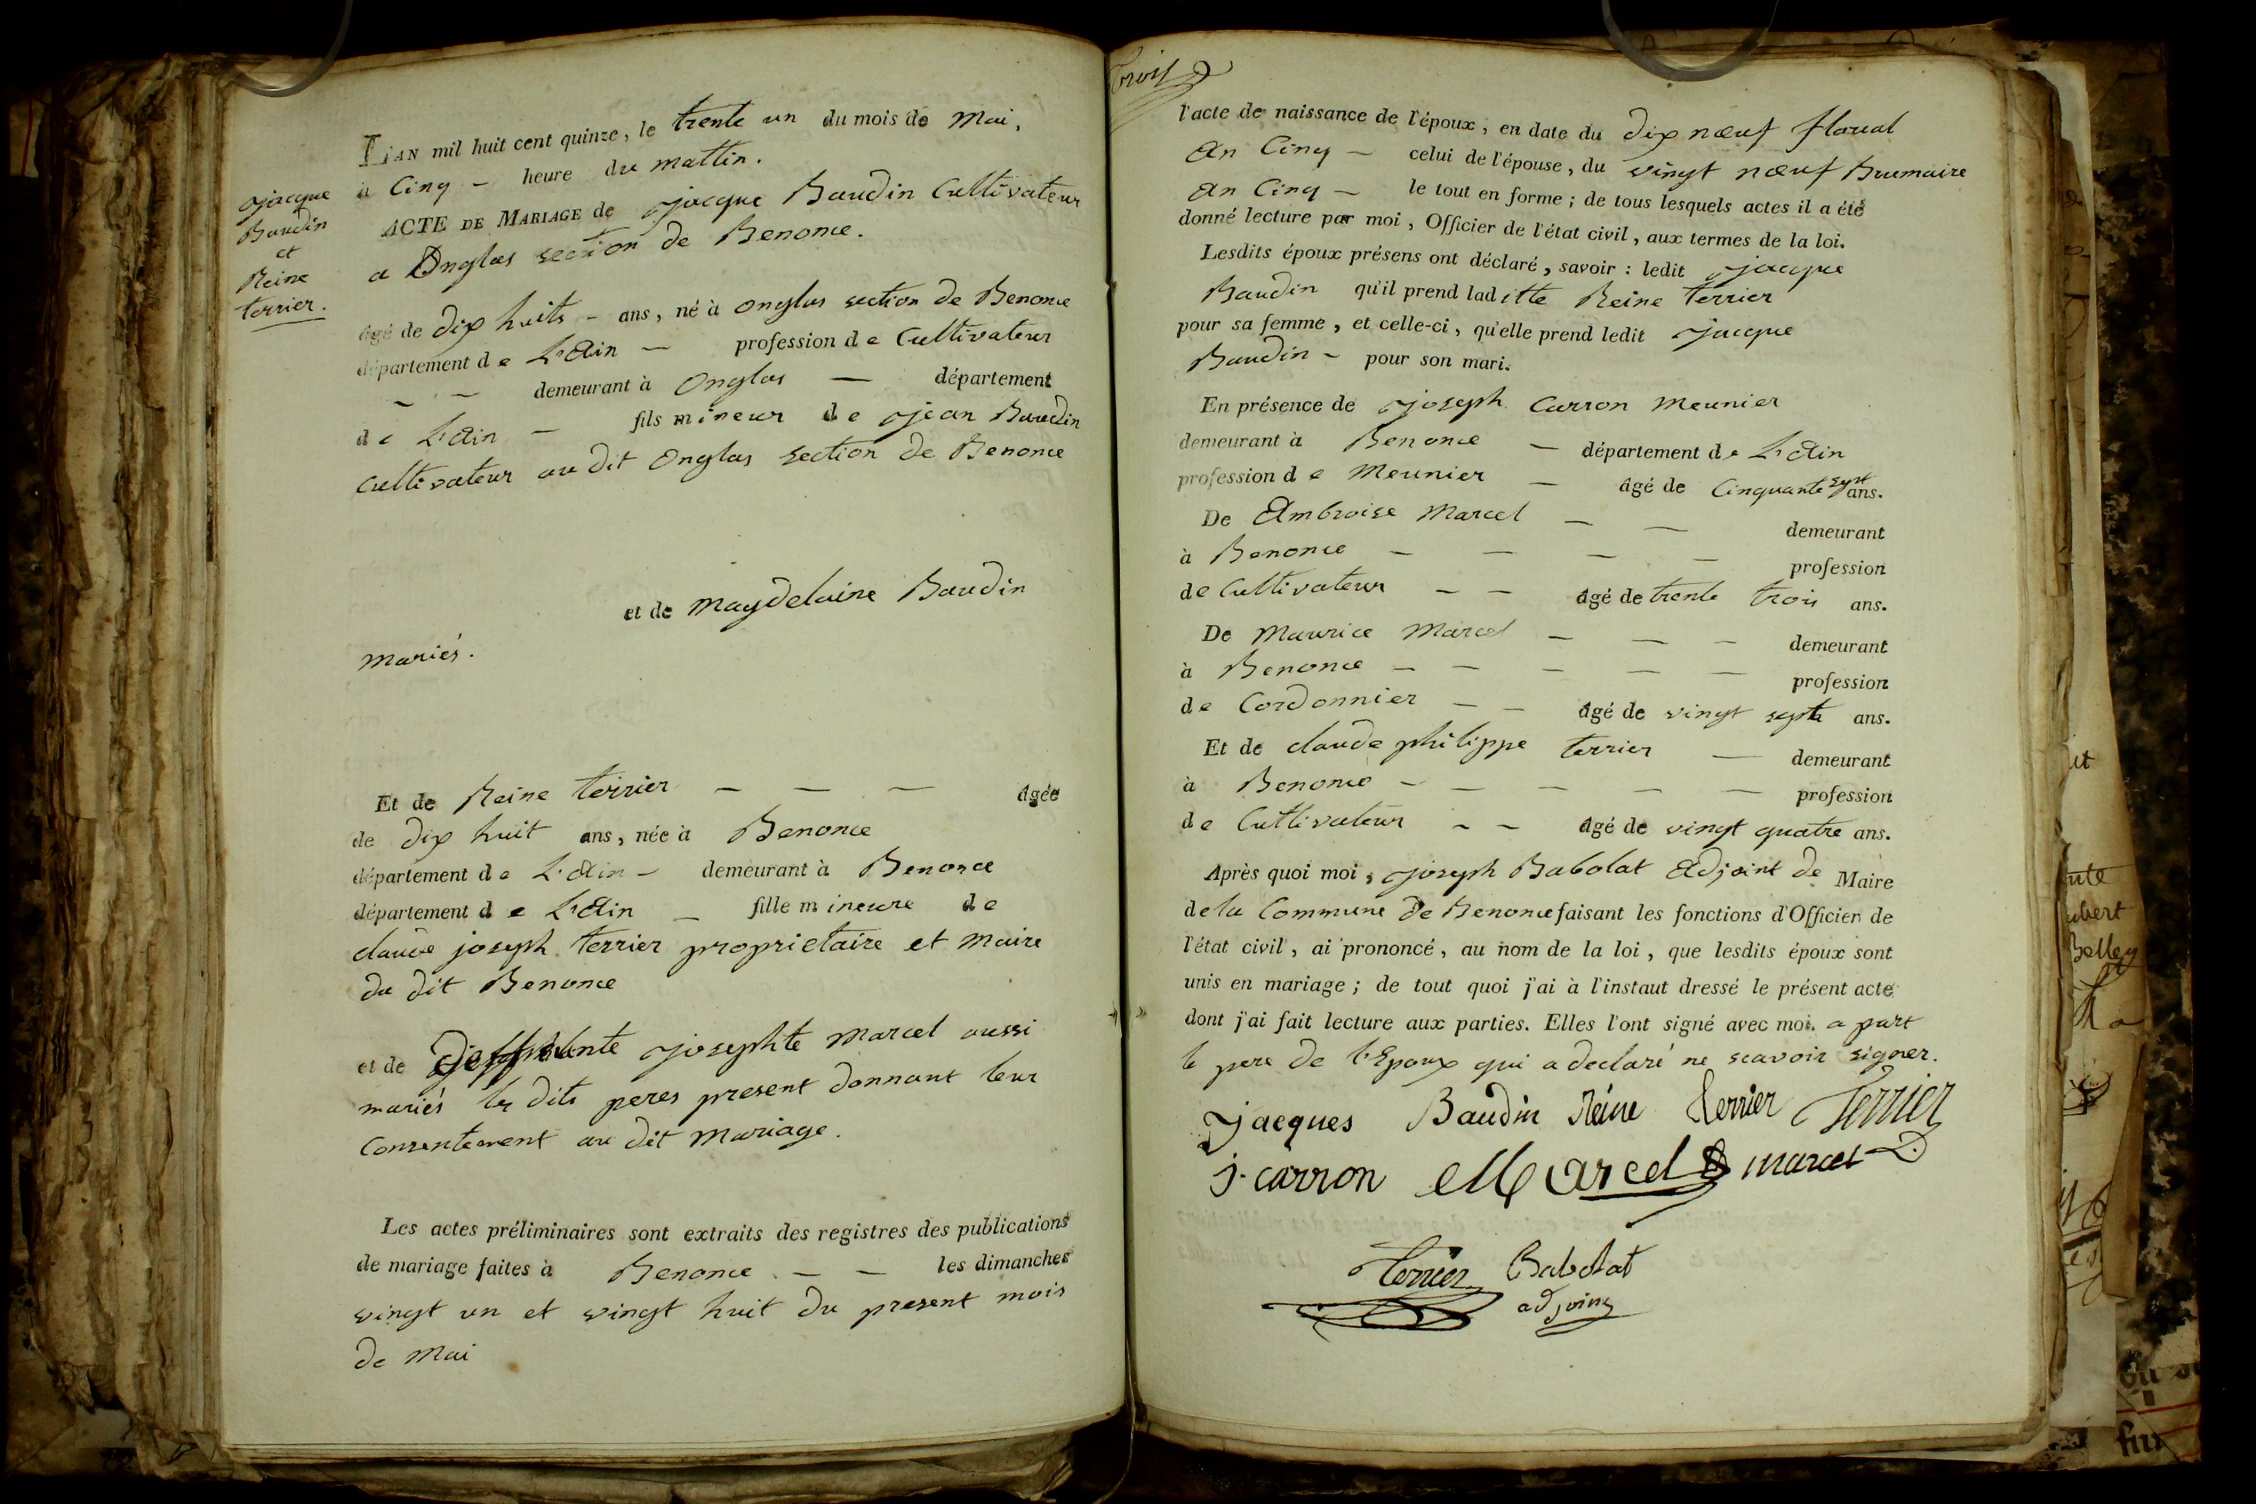 L'AN mil huit cent quinze, le trente un du mois de Mai,
à Cinq - heure du mattin.
Jacque
Baudin
et
Reine
terrier.
ACTE DE MARIAGE de Jacque Baudin Cultivateur
a Onglas section de Benonce.
âgé de dix huits - ans, né à onglas section de Benonce
département de L'Ain — profession de Cultivateur
- - demeurant à Onglas — département
de L'Ain - fils mineur de Jean Baudin
Cultivateur au dit Onglas section de Benonce
et de Magdelaine Baudin
mariés.
Et de Reine terrier — — — âgée
de dix huit ans, née à Benonce
département de L'Ain - demeurant à Benonce
département de L'Ain - fille mineure de
claude joseph terrier proprietaire et Maire
du dit Benonce
et de deffunte josephte Marcel aussi
mariés les dits peres present donnant leur
Consentement au dit Mariage.
Les actes préliminaires sont extraits des registres des publications
de mariage faites à Benonce - — les dimanches
vingt un et vingt huit du present mois
de Mai
trois
l'acte de naissance de l'époux, en date du dix nœuf floreal
An Cinq - celui de l'épouse, du vingt nœuf Brumaire
An Cinq - le tout en forme ; de tous lesquels actes il a été
donné lecture par moi, Officier de l'état civil, aux termes de la loi.
Lesdits époux présens ont déclaré, savoir : ledit Jacque
Baudin qu'il prend laditte Reine terrier
pour sa femme, et celle-ci, qu'elle prend ledit Jacque
Baudin - pour son mari.
En présence de Joseph Carron Meunier
demeurant à Benonce - département de L'Ain
profession de Meunier - âgé de Cinquante sept ans.
De Ambroise Marcel — — demeurant
à Benonce - — — — profession
de Cultivateur - — âgé de trente trois ans.
De Maurice Marcel — — — demeurant
à Benonce - — — — — profession
de Cordonnier - — âgé de vingt septs ans.
Et de claude philippe terrier — demeurant
à Benonce - — — — — profession
de Cultivateur - - âgé de vingt quatre ans.
Après quoi moi, Joseph Babolat Adjoint de Maire
de la Commune de Benonce faisant les fonctions d'Officier de
l'état civil, ai prononcé, au nom de la loi, que lesdits époux sont
unis en mariage ; de tout quoi j'ai à l'instaut dressé le présent acte
dont j'ai fait lecture aux parties. Elles l'ont signé avec moi. a part
le pere de l'Epoux qui a declaré ne scavoir signer.
Jacques Baudin Réine terrier Terrier
j. carron Marcel marcel
Terrier Babolat
adjoing